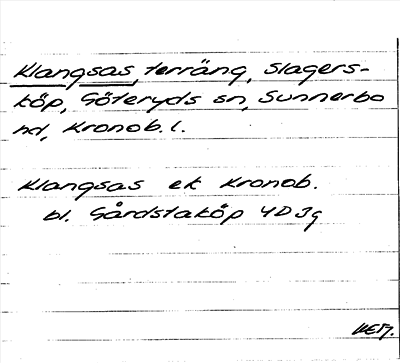 Klangsas, terräng, Slagers-
köp, Göteryds sn, Sunnerbo
hd, Kronob. l.
Klangsas ek Kronob.
bl. Gårdstaköp 4D3g